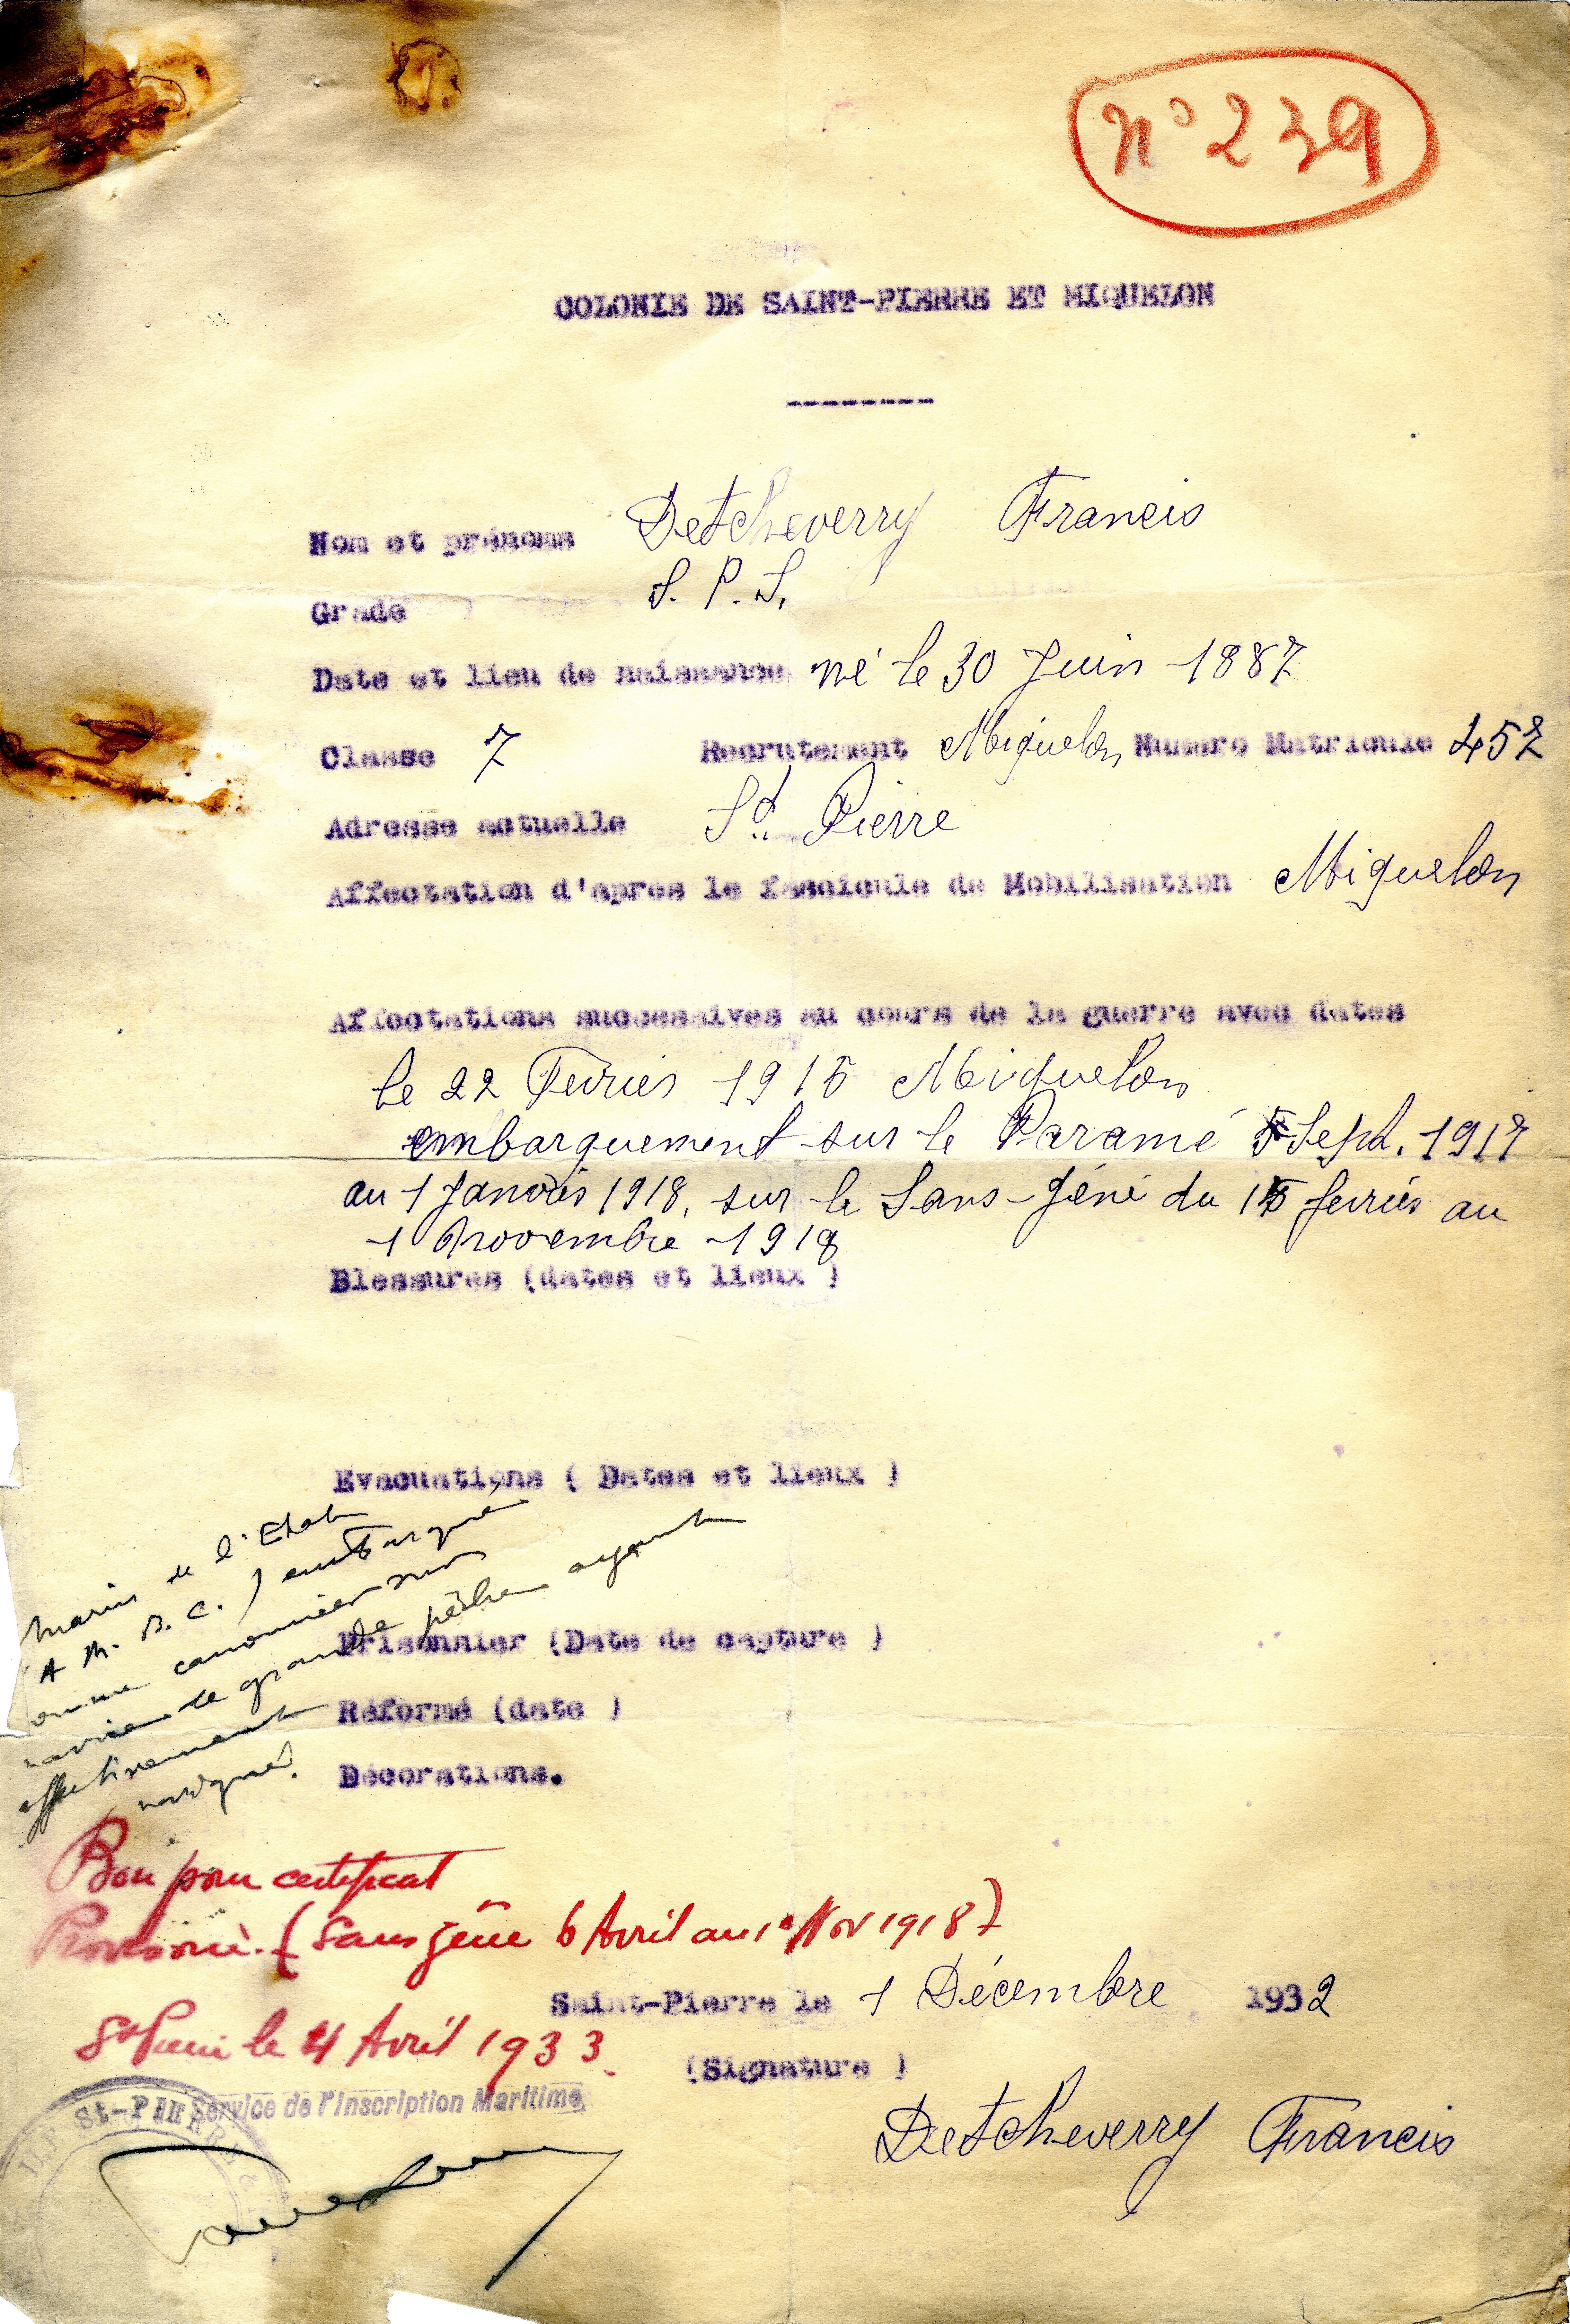 n° 239
COLONIE DE SAINT-PIERRE ET MIQUELON
---------
Nom et prénoms Detcheverry Francis
Grade S. P. S.
Date et lieu de naissance né le 30 Juin 1887
Classe 7 Recrutement Miquelon Numero Matricule 457
Adresse actuelle St. Pierre
Affectation d'apres le fascicule de Mobilisation Miquelon
Affectations successives au cours de la guerre avec dates
le 22 Fevrier 1915 Miquelon
embarquement sur le Paramé 5 Sept. 1917
au 1 Janvier 1918, sur le Sans-Géne du 15 fevrier au
1 novembre 1918
Blessures (dates et lieux )
Evacuations ( Dates et lieux )
Marin de l'Etat
(A M. B. C.) embarqué
comme canonnier sur
navire de grande pêche ayant
effectivement
navigué.
Prisonnier (Date de capture )
Réformé (date )
Décorations.
Bon pour certificat
Provisoire. (Sans gêne 6 Avril au 1° Nov 1918)
Saint-Pierre le 1 Décembre 1932
St Pierre le 4 Avril 1933.
(Signature )
Service de l'Inscription Maritime
St-PIERRE &
Detcheverry Francis